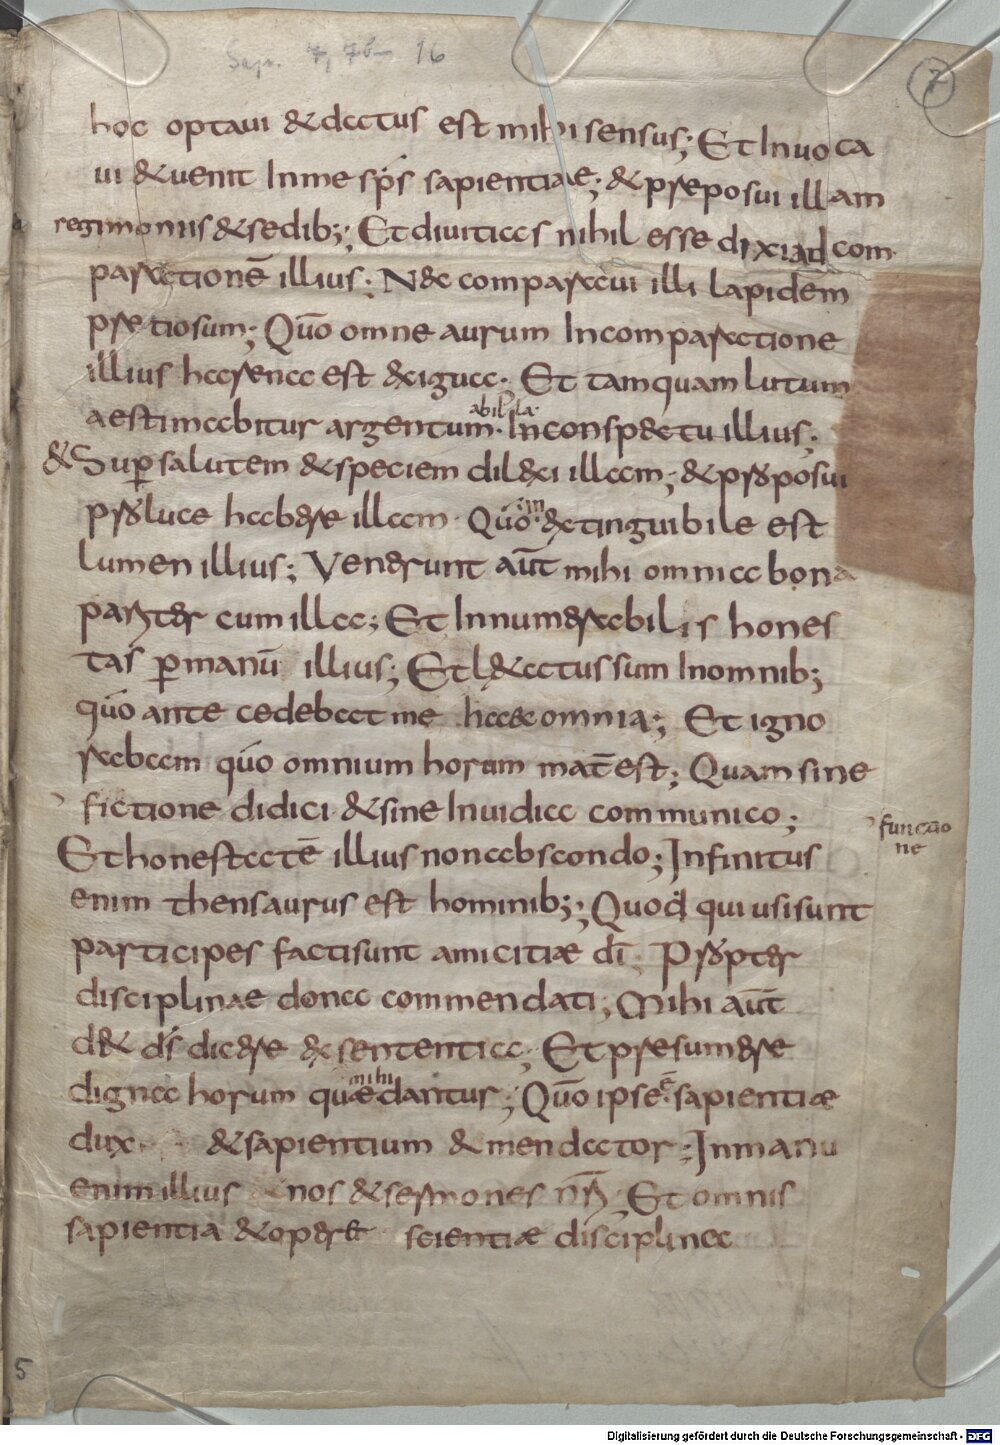 Sap. 7, 7b – 16
7
hoc optavi & datus est mihi sensus; Et Invoca
vi & venit Inme sp̄s sapientiae; & preposui illam
regimoniis & sedib; Et divitias nihil esse dixi ad com
parationē illius; Nec comparavi illi lapidem
pretiosum; Quō omne aurum Incomparatione
illius harena est & exigua; Et tamquam lutum
abil la
aestimabitur argentum· Inconspectu illius;
& Sup salutem & speciem dilexi illam; & proposui
in
proluce habere illam· Quō extinguibile est
lumen illius; Venerunt aūt mihi omnia bona
pariter cum illa; Et Innumerabilis hones
tas p manū illius; Et lętatus sum Inomnib;
quō ante cedebat me haec omnia; Et igno
rabam quō omnium horum mat̄ est; Quam sine
fictione didici & sine Invidia communico;
functio
ne
Et honestatē illius non abscondo; Infinitus
enim thensaurus est hominib; Quod qui usi sunt
participes facti sunt amicitiæ dī· Propter
disciplinae dona commendati; Mihi aūt
det ds̄ dicere ex sententia; Et presumere
mihi
digna horum quæ dantur; Quō ipse ē sapientiæ
dux & sapientium emendator; Inmanu
enim illius & nos & sermones nr̄i; Et omnis
sapientia & operū scientiæ disciplina
5
Digitalisierung gefördert durch die Deutsche Forschungsgemeinschaft - DFG